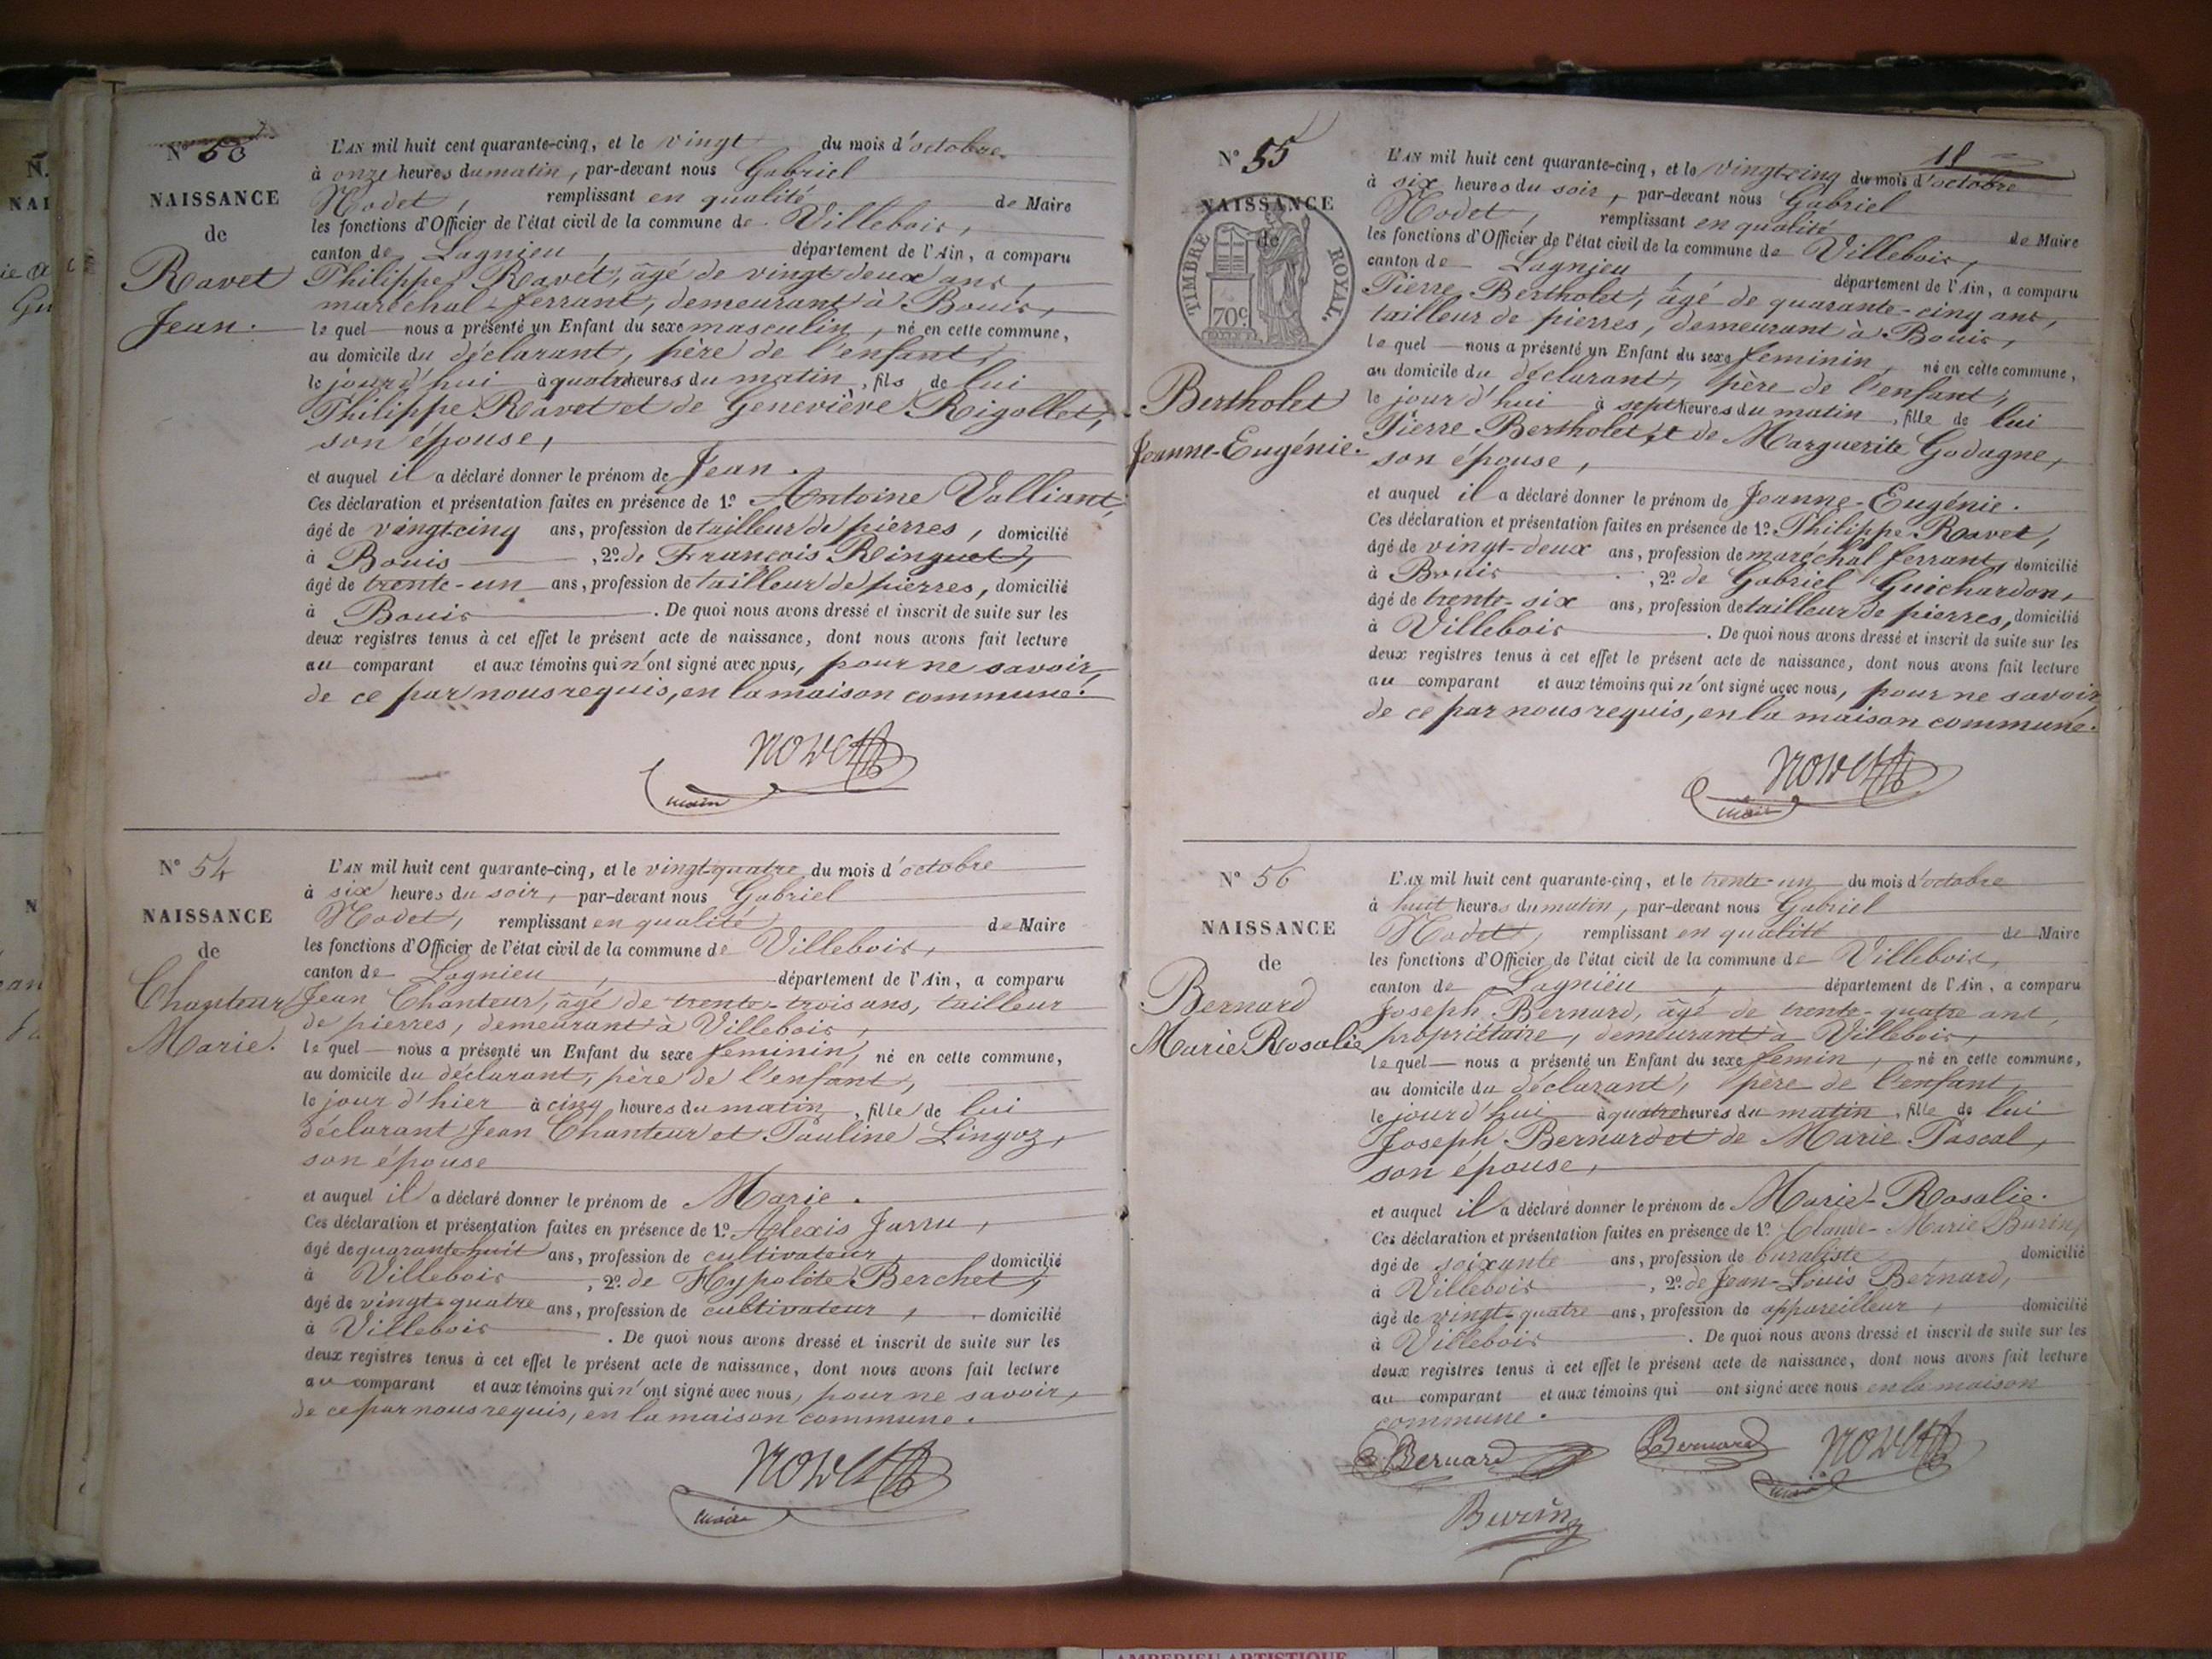 N° 53
NAISSANCE
de
Ravet
Jean.
L'AN mil huit cent quarante-cinq, et le vingt du mois d'octobre
à onze heures du matin, par-devant nous Gabriel
Nodet, remplissant en qualité de Maire
les fonctions d'Officier de l'état civil de la commune de Villebois,
canton de Lagnieu, département de l'Ain, a comparu
Philippe Ravet, âgé de vingt deux ans,
maréchal-ferrant, demeurant à Bouis,
le quel nous a présenté un Enfant du sexe masculin, né en cette commune,
au domicile du déclarant, père de l'enfant,
le jourd'hui à quatre heures du matin, fils de lui
Philippe Ravet et de Geneviève Rigollet,
son épouse,
et auquel il a déclaré donner le prénom de Jean.
Ces déclaration et présentation faites en présence de 1° Antoine Valliant,
âgé de vingt-cinq ans, profession de tailleur de pierres, domicilié
à Bouis, 2° de François Ringuet,
âgé de trente-un ans, profession de tailleur de pierres, domicilié
à Bouis. De quoi nous avons dressé et inscrit de suite sur les
deux registres tenus à cet effet le présent acte de naissance, dont nous avons fait lecture
au comparant et aux témoins qui n'ont signé avec nous, pour ne savoir,
de ce par nous requis, en la maison commune.
Nodet
maire
N° 54
NAISSANCE
de
Chanteur
Marie.
L'AN mil huit cent quarante-cinq, et le vingt-quatre du mois d'octobre
à six heures du soir, par-devant nous Gabriel
Nodet, remplissant en qualité de Maire
les fonctions d'Officier de l'état civil de la commune de Villebois,
canton de Lagnieu, département de l'Ain, a comparu
Jean Chanteur, âgé de trente-trois ans, tailleur
de pierres, demeurant à Villebois,
le quel nous a présenté un Enfant du sexe feminin, né en cette commune,
au domicile du déclarant, père de l'enfant,
le jour d'hier à cinq heures du matin, fille de lui
déclarant Jean Chanteur et Pauline Lingoz,
son épouse
et auquel il a déclaré donner le prénom de Marie.
Ces déclaration et présentation faites en présence de 1° Alexis Jarru,
âgé de quarante huit ans, profession de cultivateur, domicilié
à Villebois, 2° de Hypolite Berchet,
âgé de vingt-quatre ans, profession de cultivateur, domicilié
à Villebois. De quoi nous avons dressé et inscrit de suite sur les
deux registres tenus à cet effet le présent acte de naissance, dont nous avons fait lecture
au comparant et aux témoins qui n'ont signé avec nous, pour ne savoir,
de ce par nous requis, en la maison commune.
Nodet
maire
18
N° 55
NAISSANCE
de
TIMBRE ROYAL.
70c
Bertholet
Jeanne-Eugénie.
L'AN mil huit cent quarante-cinq, et le vingt-cinq du mois d'octobre
à six heures du soir, par-devant nous Gabriel
Nodet, remplissant en qualité de Maire
les fonctions d'Officier de l'état civil de la commune de Villebois,
canton de Lagnieu, département de l'Ain, a comparu
Pierre Bertholet, âgé de quarante-cinq ans,
tailleur de pierres, demeurant à Bouis,
le quel nous a présenté un Enfant du sexe feminin, né en cette commune,
au domicile du déclarant, père de l'enfant,
le jour d'hui à sept heures du matin, fille de lui
Pierre Bertholet, et de Marguerite Godagne,
son épouse,
et auquel il a déclaré donner le prénom de Jeanne-Eugénie.
Ces déclaration et présentation faites en présence de 1° Philippe Ravet,
âgé de vingt-deux ans, profession de maréchal ferrant, domicilié
à Bouis, 2° de Gabriel Guichardon,
âgé de trente-six ans, profession de tailleur de pierres, domicilié
à Villebois. De quoi nous avons dressé et inscrit de suite sur les
deux registres tenus à cet effet le présent acte de naissance, dont nous avons fait lecture
au comparant et aux témoins qui n'ont signé avec nous, pour ne savoir,
de ce par nous requis, en la maison commune.
Nodet
maire
N° 56
NAISSANCE
de
Bernard
Marie Rosalie
L'AN mil huit cent quarante-cinq, et le trente-un du mois d'octobre
à huit heures du matin, par-devant nous Gabriel
Nodet, remplissant en qualité de Maire
les fonctions d'Officier de l'état civil de la commune de Villebois,
canton de Lagnieu, département de l'Ain, a comparu
Joseph Bernard, âgé de trente-quatre ans,
propriétaire, demeurant à Villebois,
le quel nous a présenté un Enfant du sexe femin, né en cette commune,
au domicile du déclarant, père de l'enfant,
le jourd'hui à quatre heures du matin, fille de lui
Joseph Bernard et de Marie Pascal,
son épouse,
et auquel il a déclaré donner le prénom de Marie-Rosalie.
Ces déclaration et présentation faites en présence de 1° Claude-Marie Burin,
âgé de soixante ans, profession de buraliste domicilié
à Villebois, 2° de Jean-Louis Bernard,
âgé de vingt-quatre ans, profession de appareilleur, domicilié
à Villebois. De quoi nous avons dressé et inscrit de suite sur les
deux registres tenus à cet effet le présent acte de naissance, dont nous avons fait lecture
au comparant et aux témoins qui ont signé avec nous en la maison
commune.
Bernard Bernard Nodet
maire
Burin